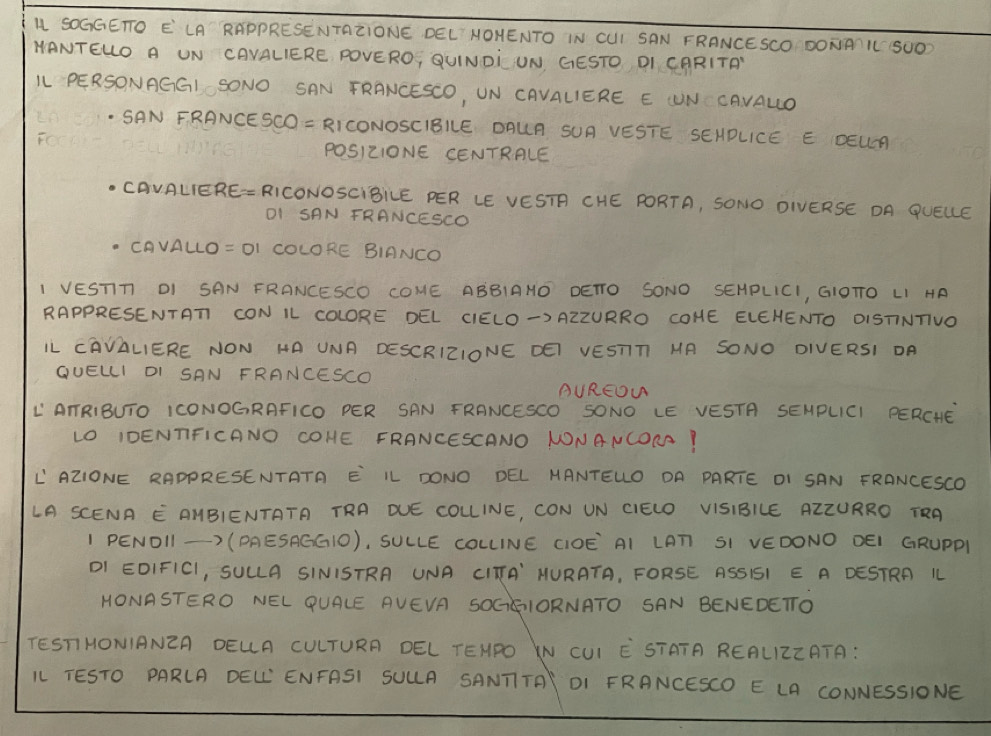 IL SOGGETTO E' LA RAPPRESENTAZIONE DEL MOMENTO IN CUI SAN FRANCESCO DONA IL SUO
MANTELLO A UN CAVALIERE POVERO, QUINDI UN GESTO DI CARITA'
IL PERSONAGGI SONO SAN FRANCESCO, UN CAVALIERE E UN CAVALLO
• SAN FRANCESCO = RICONOSCIBILE DALLA SUA VESTE SEMPLICE E DELLA
POSIZIONE CENTRALE
• CAVALIERE = RICONOSCIBILE PER LE VESTA CHE PORTA, SONO DIVERSE DA QUELLE
DI SAN FRANCESCO
• CAVALLO = DI COLORE BIANCO
I VESTITI DI SAN FRANCESCO COME ABBIAMO DETTO SONO SEMPLICI, GIOTTO LI HA
RAPPRESENTATI CON IL COLORE DEL CIELO -> AZZURRO COME ELEMENTO DISTINTIVO
IL CAVALIERE NON HA UNA DESCRIZIONE DEI VESTITI MA SONO DIVERSI DA
QUELLI DI SAN FRANCESCO
AUREOLA
L'ATTRIBUTO ICONOGRAFICO PER SAN FRANCESCO SONO LE VESTA SEMPLICI PERCHE'
LO IDENTIFICANO COME FRANCESCANO NON ANCORA !
L'AZIONE RAPPRESENTATA È IL DONO DEL MANTELLO DA PARTE DI SAN FRANCESCO
LA SCENA È AMBIENTATA TRA DUE COLLINE, CON UN CIELO VISIBILE AZZURRO TRA
I PENDII -> (PAESAGGIO). SULLE COLLINE CIOE' AI LATI SI VEDONO DEI GRUPPI
DI EDIFICI, SULLA SINISTRA UNA CITTA' MURATA, FORSE ASSISI E A DESTRA IL
MONASTERO NEL QUALE AVEVA SOGGIORNATO SAN BENEDETTO
TESTIMONIANZA DELLA CULTURA DEL TEMPO IN CUI È STATA REALIZZATA:
IL TESTO PARLA DELL'ENFASI SULLA SANTITA' DI FRANCESCO E LA CONNESSIONE